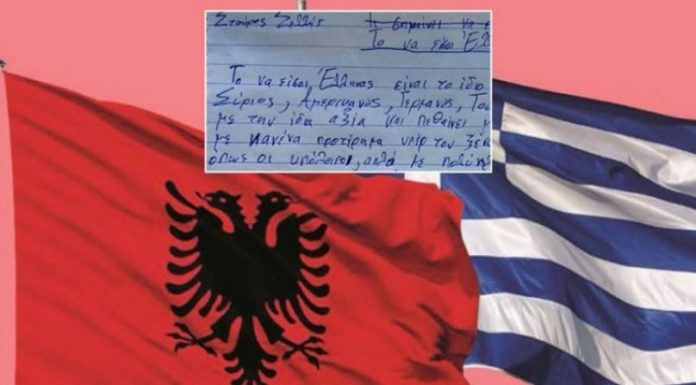 Σταύρος
τι σημαίνει να
Το να είσαι Έλλ
Το να είσαι Έλληνας είναι το ίδιο
Σύριος, Αμερικανός, Γερμανός, Του
με την ίδια αξία και πεθαίνει μ
με κανένα προτέρημα υπέρ του ξέν
όπως οι υπόλοιποι, απλά με